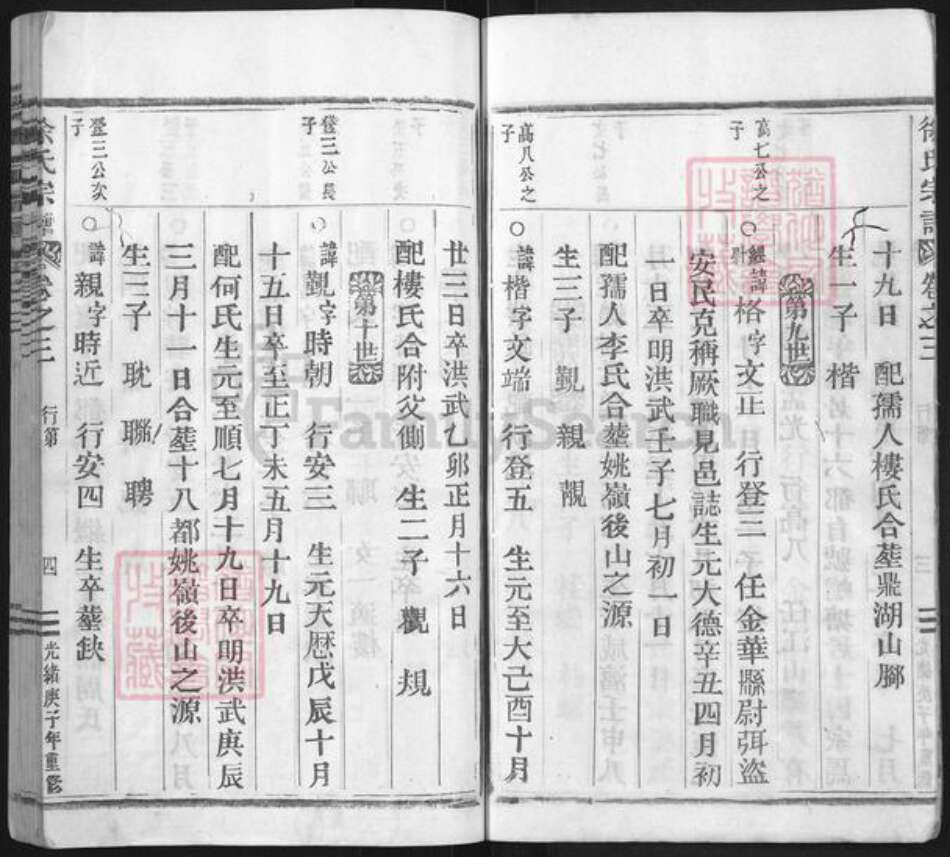 徐氏宗譜 卷之三 行第 三
十九日 配孺人樓氏合塟鼎湖山腳
生一子 楷
第九世
高七公之子
○縣尉諱格字文止 行登三 任金華縣尉弭盜
安民克稱厥職見邑誌生元大德辛丑四月初
一日卒明洪武壬子七月初一日
配孺人李氏合塟姚嶺後山之源
生三子 覲 親 覶
高八公之子
○諱楷字文端 行登五 生元至大己酉十月
廿三日卒洪武乙卯正月十六日
配樓氏合附父側 生二子 觀 規
第十世
登三公長子
○諱覲字時朝 行安三 生元天歷戊辰十月
十五日卒至正丁未五月十九日
配何氏生元至順七月十九日卒明洪武庚辰
三月十一日合塟十八都姚嶺後山之源
生三子 耽 聯 聘
登三公次子
○諱親字時近 行安四 生卒塟缺
徐氏宗譜 卷之三 行第 四 光緒庚子年重修
FamilySearch